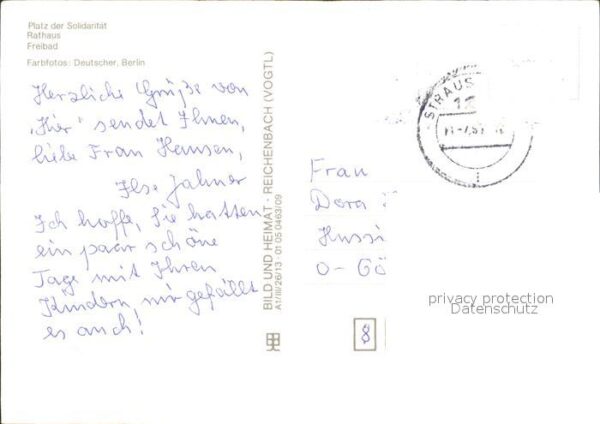 Platz der Solidarität
Rathaus
Freibad
Farbfotos: Deutscher, Berlin
Herzliche Grüße von
"Hier" sendet Ihnen,
liebe Frau Hansen,
Ilse Jahner
Ich hoffe, Sie hatten
ein paar schöne
Tage mit Ihren
Kindern, mir gefällt
es auch!
BILD UND HEIMAT · REICHENBACH (VOGTL)
A1/III/26/13 01 05 0463/09
STRAUS
12
Frau
Dora
Hussi
O-Gö
8
privacy protection
Datenschutz